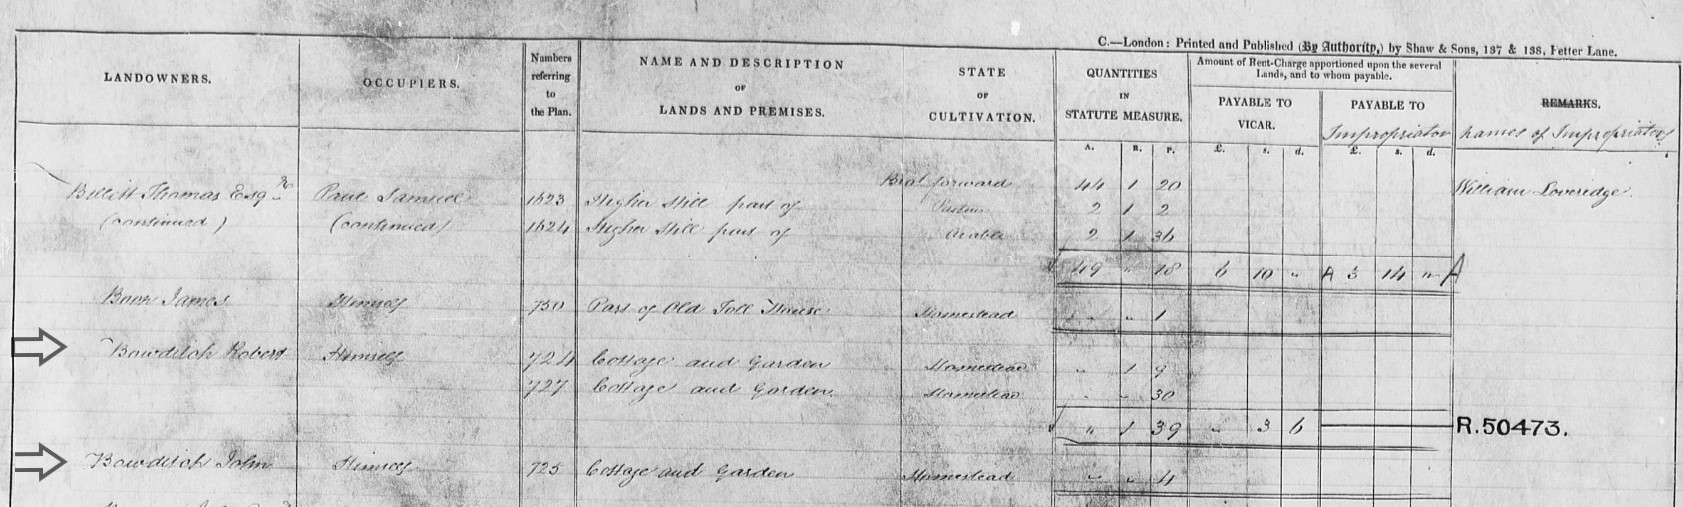 C.—London: Printed and Published (By Authority,) by Shaw & Sons, 137 & 138, Fetter Lane.
LANDOWNERS. OCCUPIERS. Numbers referring to the Plan. NAME AND DESCRIPTION OF LANDS AND PREMISES. STATE OF CULTIVATION. QUANTITIES IN STATUTE MEASURE. Amount of Rent-Charge apportioned upon the several Lands, and to whom payable. REMARKS.
PAYABLE TO VICAR. PAYABLE TO Impropriator names of Impropriators
A. R. P. £. s. d. £. s. d.
Brot forward 44 1 20 William Loveridge
Thomas Esqre Paul Samuel 1623 Higher Hill part of Pasture 2 1 2
(continued) (continued) 1624 Higher Hill part of Arable 2 1 36
49 " 18 6 10 " A 3 14 " A
James Himself 750 Part of Old Toll House Homestead " " 1
Bowditch Robert Himself 724 Cottage and Garden Homestead " 1 9
727 Cottage and Garden Homestead " " 30
" 1 39 " 3 6 R.50473.
Bowditch John Himself 725 Cottage and Garden Homestead " " 4